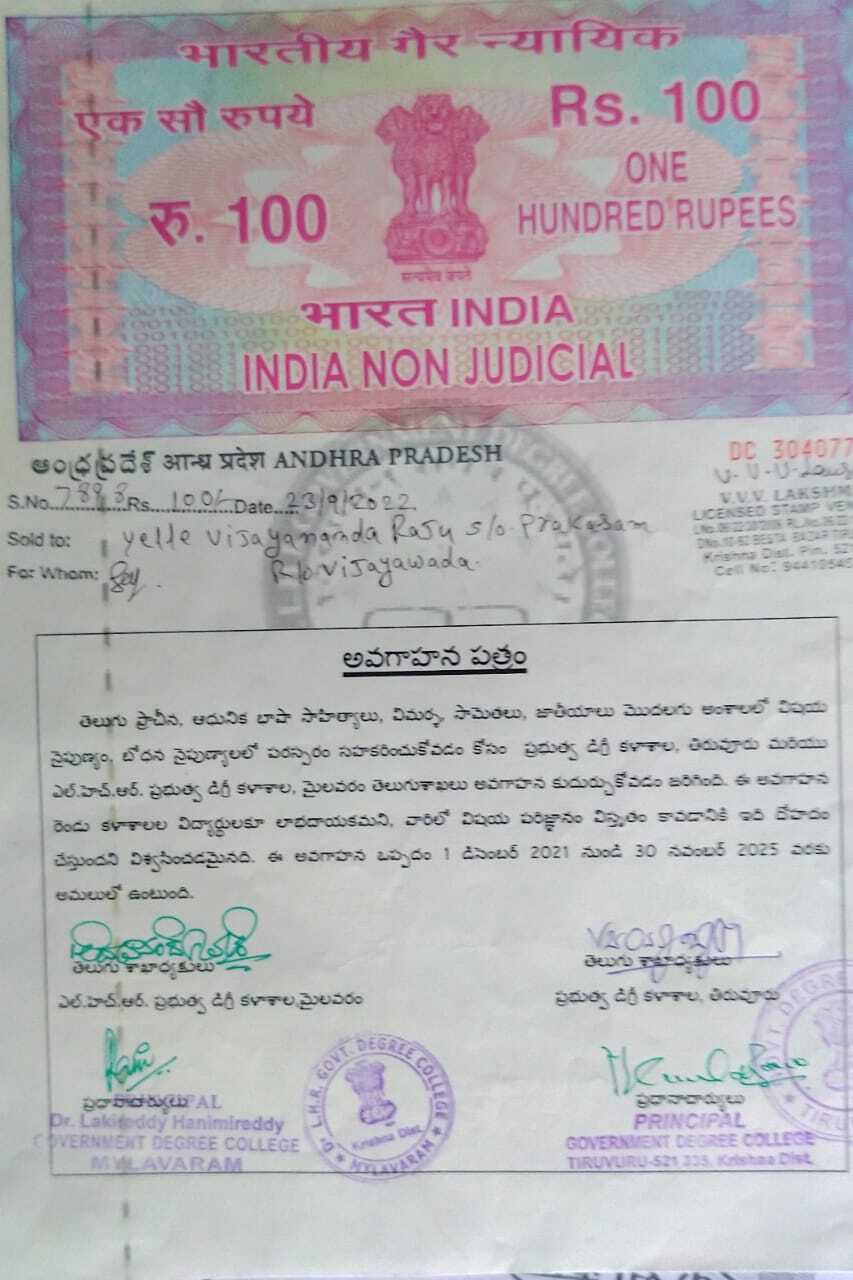 भारतीय गैर न्यायिक
एक सौ रुपये
Rs. 100
ONE
रु. 100
HUNDRED RUPEES
सत्यमेव जयते
भारत INDIA
INDIA NON JUDICIAL
ఆంధ్రప్రదేశ్ आन्ध्र प्रदेश ANDHRA PRADESH
DC 304077
S.No. 7898 Rs. 100/- Date 23/9/2022
V.V.V. LAKSHM
LICENSED STAMP VEN
Sold to: yelle vijayananda Raju s/o. Prakasam
For Whom: R/o. vijayawada.
Krishna Dist. Pin. 52
Cell No: 94419545
అవగాహన పత్రం
తెలుగు ప్రాచీన, ఆధునిక బాషా సాహిత్యాలు, విమర్శ, సామెతలు, జాతీయాలు మొదలగు అంశాలలో విషయ
నైపుణ్యం, బోదన నైపుణ్యాలలో పరస్పరం సహకరించుకోవడం కోసం ప్రభుత్వ డిగ్రీ కళాశాల, తిరువూరు మరియు
ఎల్.హెచ్.ఆర్. ప్రభుత్వ డిగ్రీ కళాశాల, మైలవరం తెలుగుశాఖలు అవగాహన కుదుర్చుకోవడం జరిగింది. ఈ అవగాహన
రెండు కళాశాలల విద్యార్థులకూ లాభదాయకమని, వారిలో విషయ పరిజ్ఞానం విస్తృతం కావడానికి ఇది దోహదం
చేస్తుందని విశ్వసించడమైనది. ఈ అవగాహన ఒప్పదం 1 డిసెంబర్ 2021 నుండి 30 నవంబర్ 2025 వరకు
అమలులో ఉంటుంది.
తెలుగు శాఖాధ్యక్షులు
తెలుగు శాఖాధ్యక్షులు
ఎల్.హెచ్.ఆర్. ప్రభుత్వ డిగ్రీ కళాశాల,మైలవరం
ప్రభుత్వ డిగ్రీ కళాశాల, తిరువూరు
Dr. L.H.R. GOVT. DEGREE COLLEGE
Krishna Dist.
MYLAVARAM
ప్రధానాచార్యులు
ప్రధానాచార్యులు
PRINCIPAL
Dr. Lakireddy Hanimireddy
GOVERNMENT DEGREE COLLEGE
MYLAVARAM
PRINCIPAL
GOVERNMENT DEGREE COLLEGE
TIRUVURU-521 235. Krishna Dist.